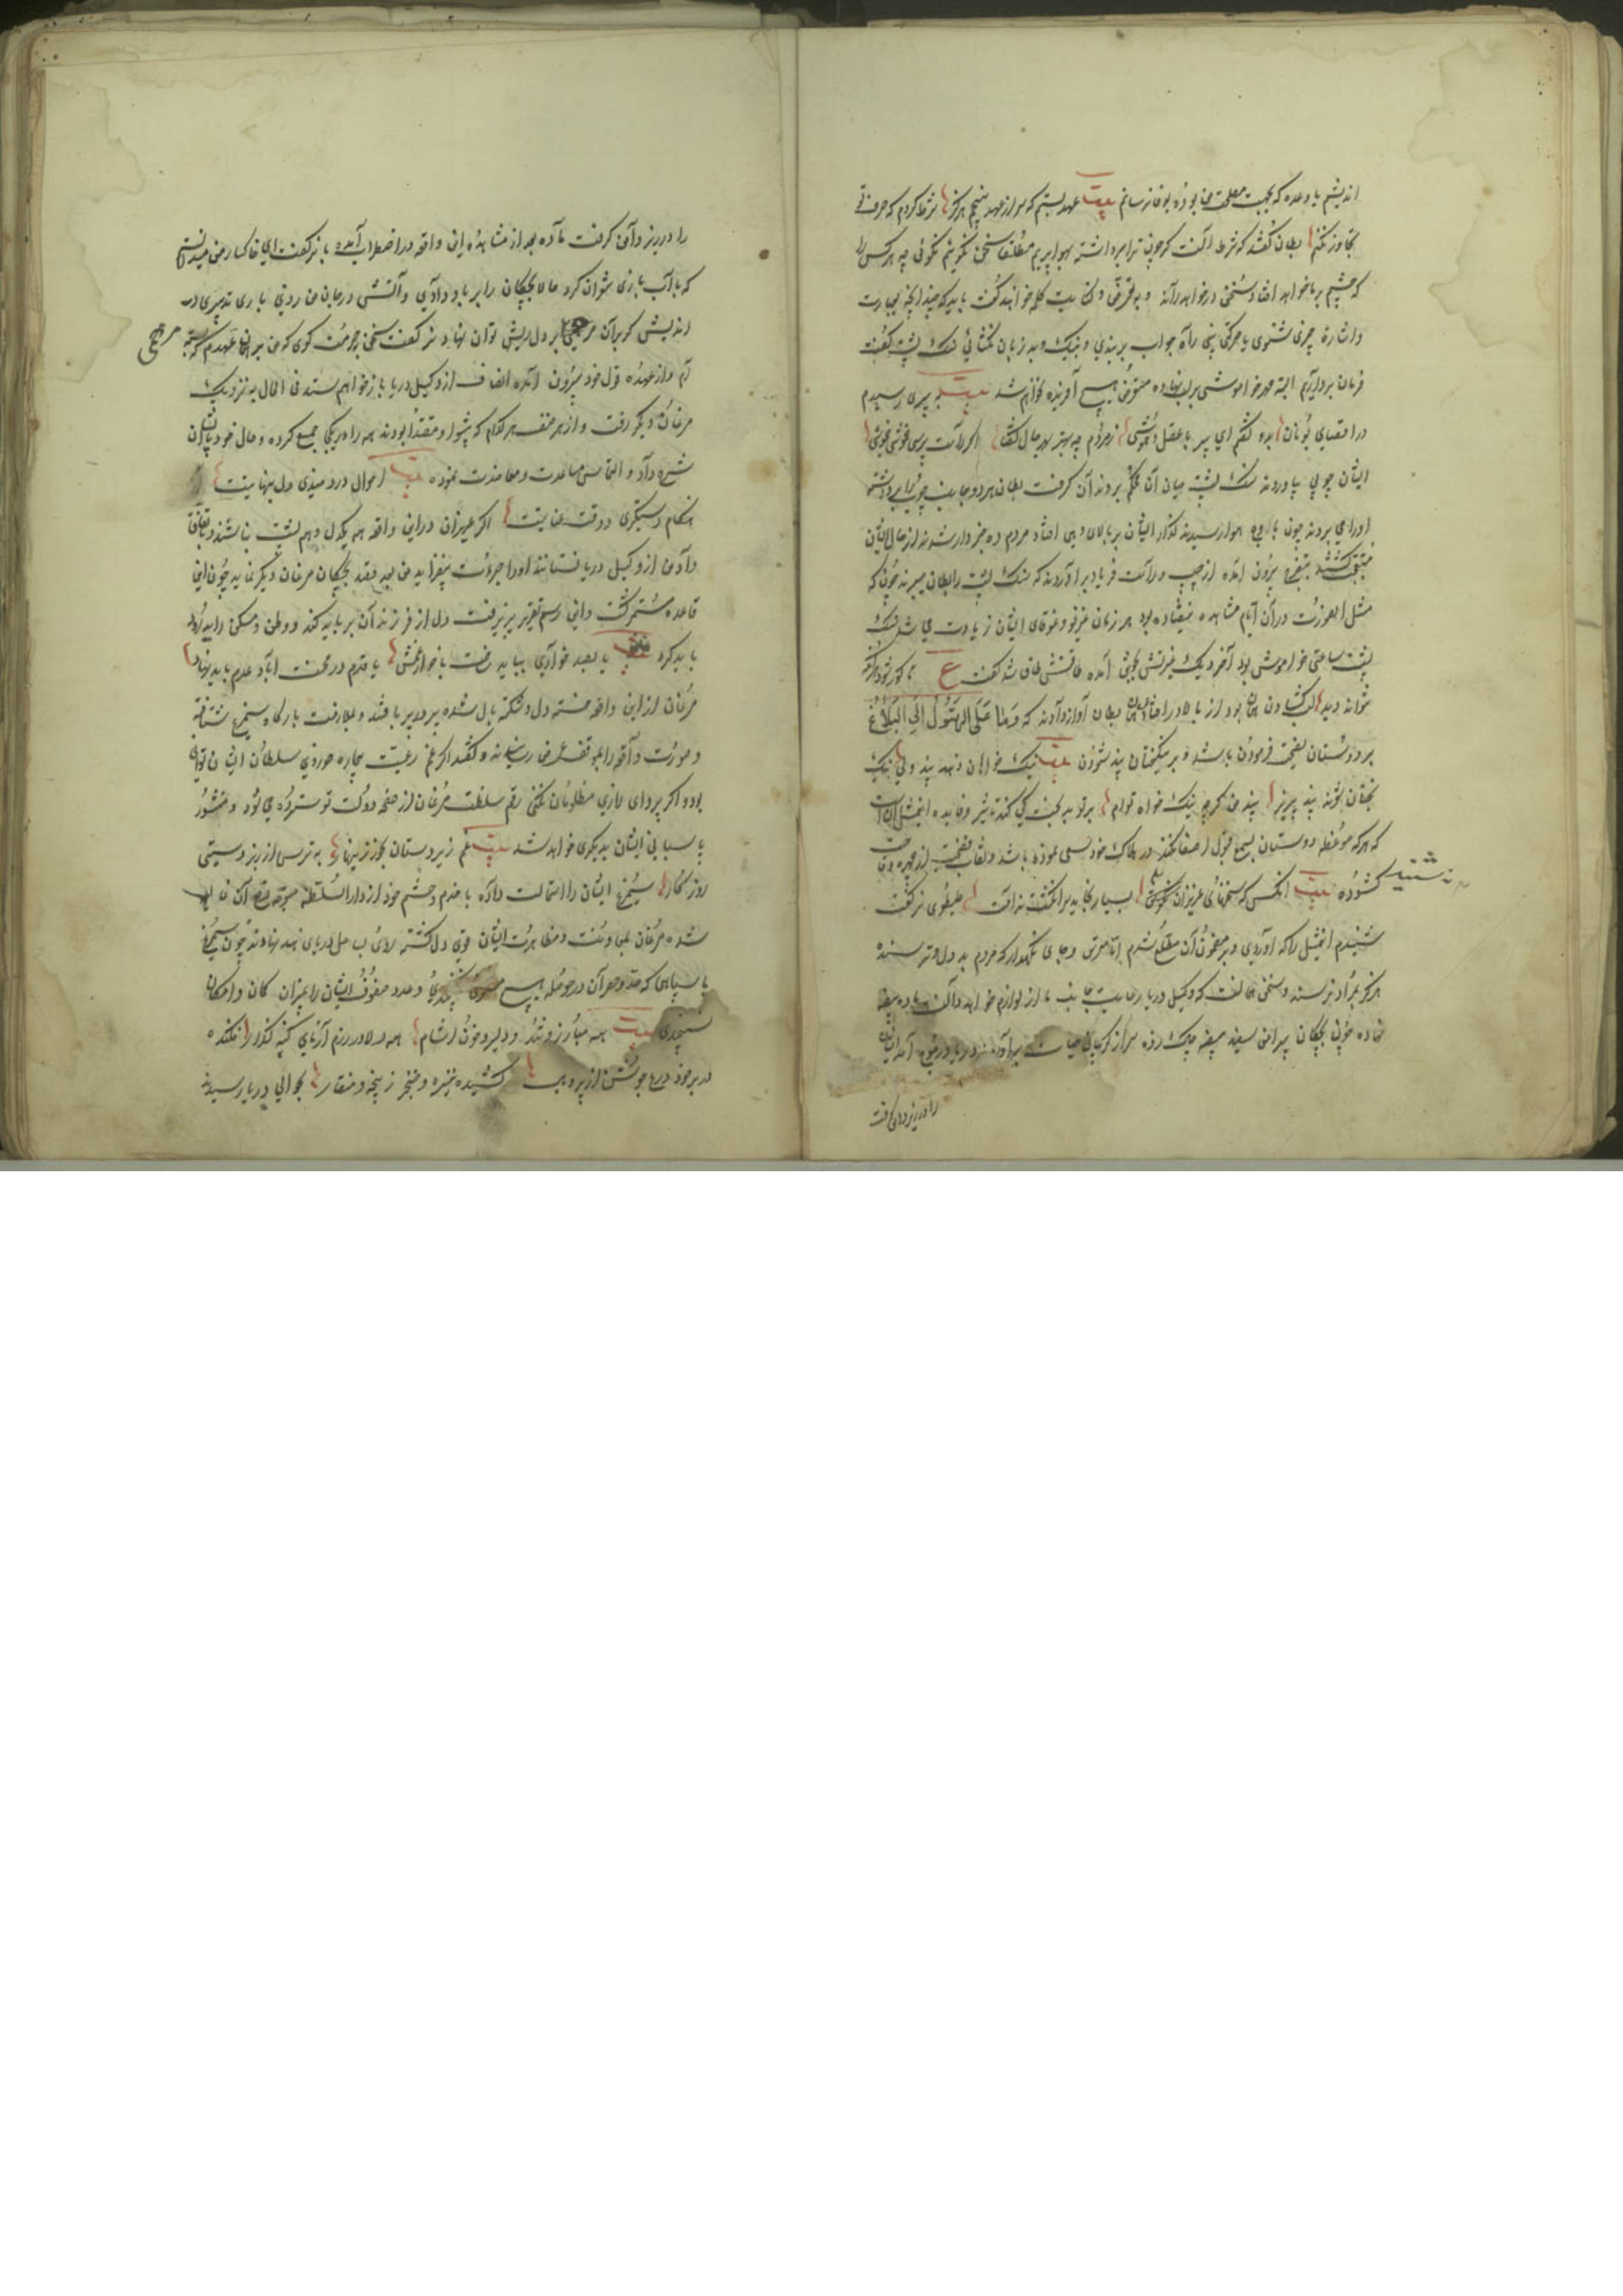 اندیشم یا وعده که بجهت مصلحت من بود بوفا نرسانم بیت عهد بستم که سر از عهد نپیچم هرگز شرط کردم که ز حرف تو
تجاوز نکنم بطان گفتند که شرط آنست که چون ترا برداشته بهوا بریم مطلقا سخن نگویی چه هر کس را
که چشم بر ما خواهد افتاد سخنی در خواهد افکند و بتعریض و کنایت کلمه خواهند گفت باید که چندانچه بعبارت
و اشارت چیزی شنوی یا حرکتی بینی راه جواب بربندی و بنیک و بد زبان نگشائی سنگ پشت گفت
فرمان بردارم البته مهر خاموشی بر لب نهاده متعرض هیچ آفریده نخواهم شد بیت بپیری رسیدم
در اقصای یونان بدو گفتم ای پیر با عقل و هوشی ز مردم چه بهتر بهر حال گفتا اگر راست پرسی خموشی خموشی
ایشان چوبی بیاوردند سنگ پشت میان آن محکم بدندان گرفت بطان هر دو جانب چوب را برداشتند
او را می بردند چون باوج هوا رسیدند گذر ایشان بر بالای دیهی افتاد مردم ده خبردار شدند از حال ایشان
متعجب گشتند بتفرج برون آمده از چپ و راست فریاد برآوردند که سنگ پشت را بطان میبرند چون که
مثل این صورت در آن ایام مشاهده نیفتاده بود هر زمان غریو و غوغای ایشان زیادت می شد سنگ
پشت ساعتی خاموش بود آخر دیگ غیرتش بجوش آمده طاقتش طاق شد گفت ع تا کور شود هر آنکه
نتواند دید لب گشادن همان بود از بالا درافتادن همان بطان آواز دادند که وما علی الرسول الا البلاغ
بر دوستان نصیحت فرمودن باشد و بر نیکبختان پند شنودن بیت نیک خواهان دهند پند ولیک نیک
بختان بوند پند پذیر پند من گرچه نیک خواه توام بر تو بدبخت کی کند تاثیر و فایده این مثل آن است
که هر که موعظه دوستان بسمع قبول اصغا نکند در هلاک خود سعی نموده باشد و نقاب فضیحت از چهره وقاحت
گشوده بیت آنکس که سخنهای عزیزان نکند گوش بسیار بخاید سر انگشت ندامت طیطوی نر گفت
نشنید
شنیدم این مثل را که آوردی و بر مضمون آن مطلع شدم اما مترس و جای نگهدار که مردم بد دل و ترسنده
هرگز بمراد نرسند و سخن همان است که وکیل دریا رعایت جانب ما از لوازم خواهد دانست ماده بیضه
نهاده چون بچگان پیراهن سفید بیضه چاک زده سر از گریبان حیات برآوردند دریا در موج آمد ایشان
را در زیر دامن گرفت
را در زیر دامن گرفت ماده بعد از مشاهده این واقعه در اضطراب آمده با نر گفت ای خاکسار من میدانستم
که با آب بازی نتوان کرد حالا بچگان را بر باد دادی و آتش در جان من زدی باری تدبیری
اندیش که بدان مرهمی بر دل ریش توان نهاد نر گفت سخن بحرمت گوی که من بر همان عهدم که بستم
مرهمی
ام و از عهده قول خود بیرون آمده انصاف از وکیل دریا باز خواهم ستد فی الحال به نزدیک
مرغان دیگر رفت و از هر صنف هر کدام که پیشوا و مقتدا بودند همه را در یکجا جمع کرده و حال خود با ایشان
شرح داد و التماس مساعدت و معاضدت نموده بیت احوال درد مندی دل بی نهایت است
هنگام دستگیری و وقت عنایت است اگر عزیزان در این واقعه همه یکدل و هم پشت نباشند و باتفاق
داد من از وکیل دریا نستانند او را جرأت بیفزاید من بعد قصد بچگان مرغان دیگر نماید چون این
قاعده مستمر گشت و این رسم تقریر پذیرفت دل از فرزندان بر باید کند و وطن و مسکن را بدرود
باید کرد بیت یا بصد خواری بباید ساخت با خواریش یا قدم در محنت آباد عدم باید نهاد
مرغان از این واقعه خسته دل و شکسته بال شده پر در پر بافتند و بملازمت بارگاه سیمرغ شتافته
و صورت واقعه را بموقف عرض رسانیدند و گفتند اگر غم رعیت بیچاره خوردی سلطان ایشان توانی
بود و اگر پروای زاری مظلومان نکنی رقم سلطنت مرغان از صفحه دولت تو سترده می شود و منشور
پاسبانی ایشان بدیگری خواهد شد بیت غم زیر دستان بخور زینهار به ترس از زبر دستی
روزگار سیمرغ ایشان را استمالت داده با خدم و حشم خود از دار السلطنه متوجه آن
شده مرغان بمعاونت و مظاهرت ایشان قوی دل گشته روی بساحل دریای هند نهادند چون سیمرغ
با سپاهی که حد و حصر آن در حوصله هیچ نگنجیدی و عدد صفوف ایشان را بمیزان گمان و امکان
نسنجیدی بیت همه مبارز و تند و دلیر و خون آشام همه دلاور رزم آزمای کینه گذار افکنده
در بر خود درع جوشن از پر و بال کشیده نیزه و خنجر ز پنجه و منقار بحوالی دریا رسیدند